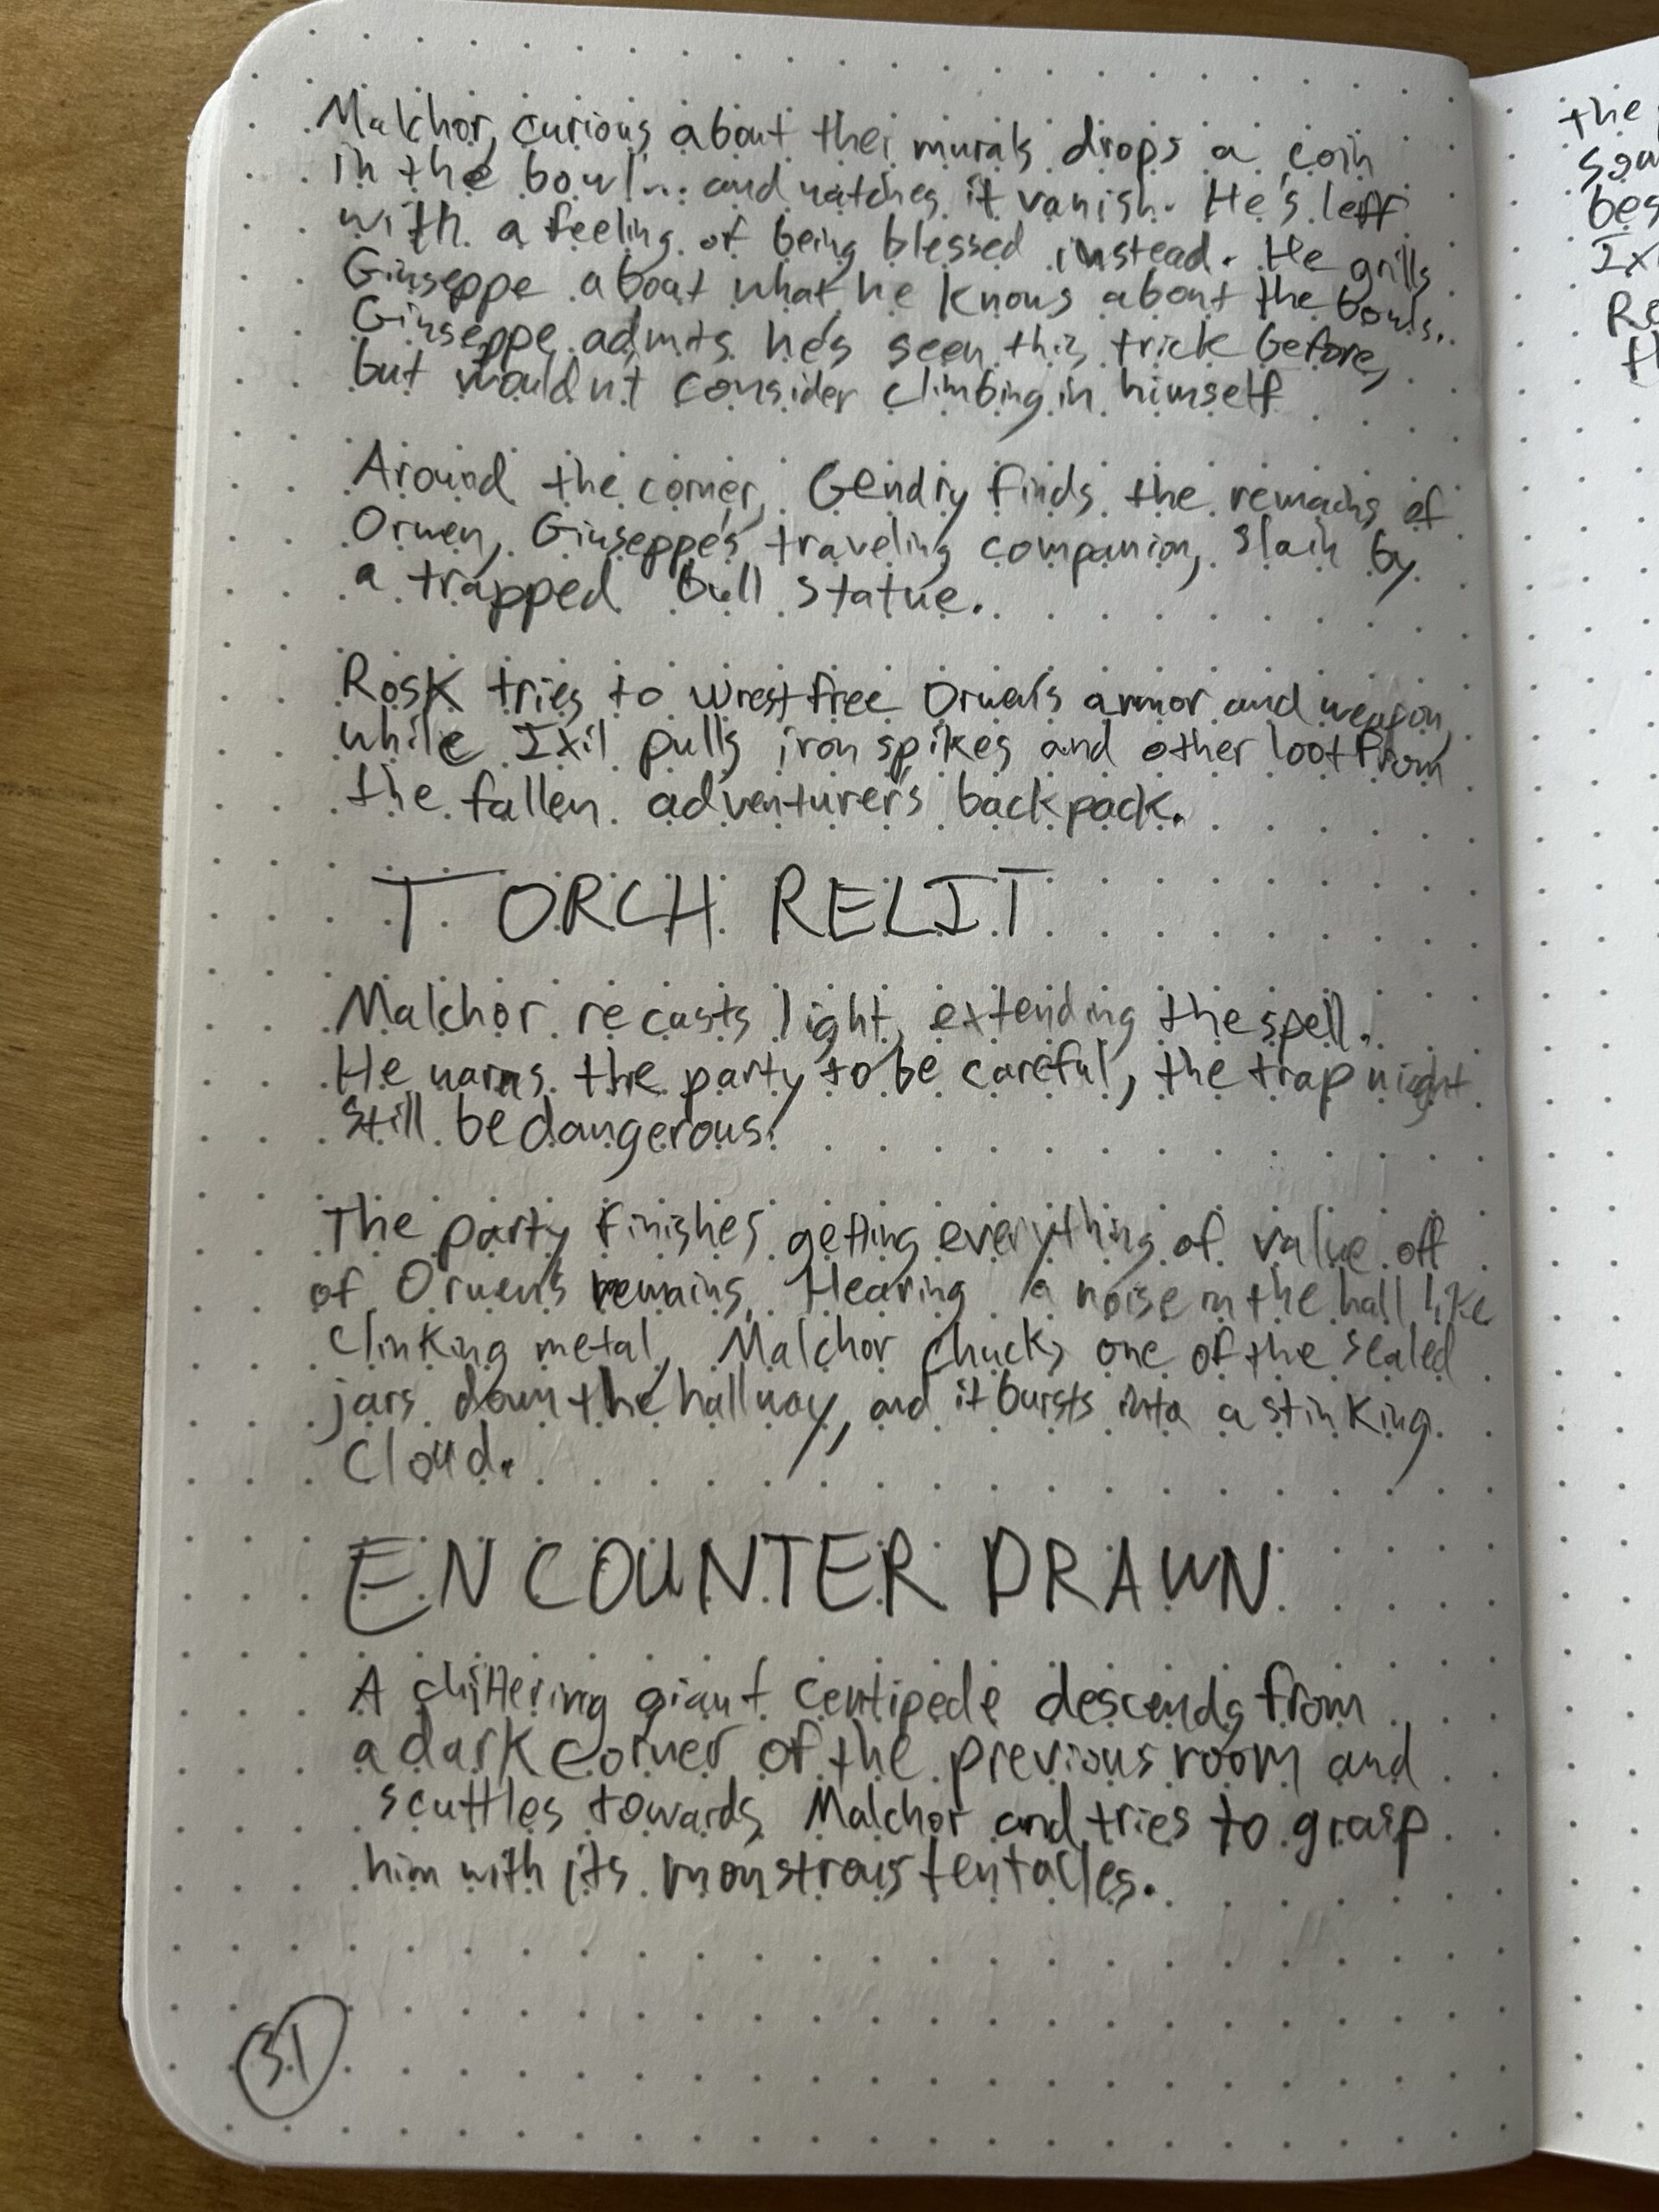 Malchor, curious about thei murals drops a coin
in the bowl... and watches it vanish. He's left
with a feeling of being blessed instead. He grills
Giuseppe about what he knows about the bowls.
Giuseppe admits he's seen this trick before,
but wouldn't consider climbing in himself
Around the corner, Gendry finds the remains of
Orwen, Giuseppe's traveling companion, slain by
a trapped bull statue.
Rosk tries to wrest free Orwen's armor and weapon,
while Ixil pulls iron spikes and other loot from
the fallen adventurer's backpack.
TORCH RELIT
Malchor recasts light, extending the spell.
He warns the party to be careful, the trap might
still be dangerous.
The party finishes getting everything of value off
of Orwen's remains. Hearing a noise in the hall like
clinking metal, Malchor chucks one of the sealed
jars down the hallway, and it bursts into a stinking
cloud.
ENCOUNTER DRAWN
A chittering giant centipede descends from
a dark corner of the previous room and
scuttles towards Malchor and tries to grasp
him with its monstrous tentacles.
31
the
bes